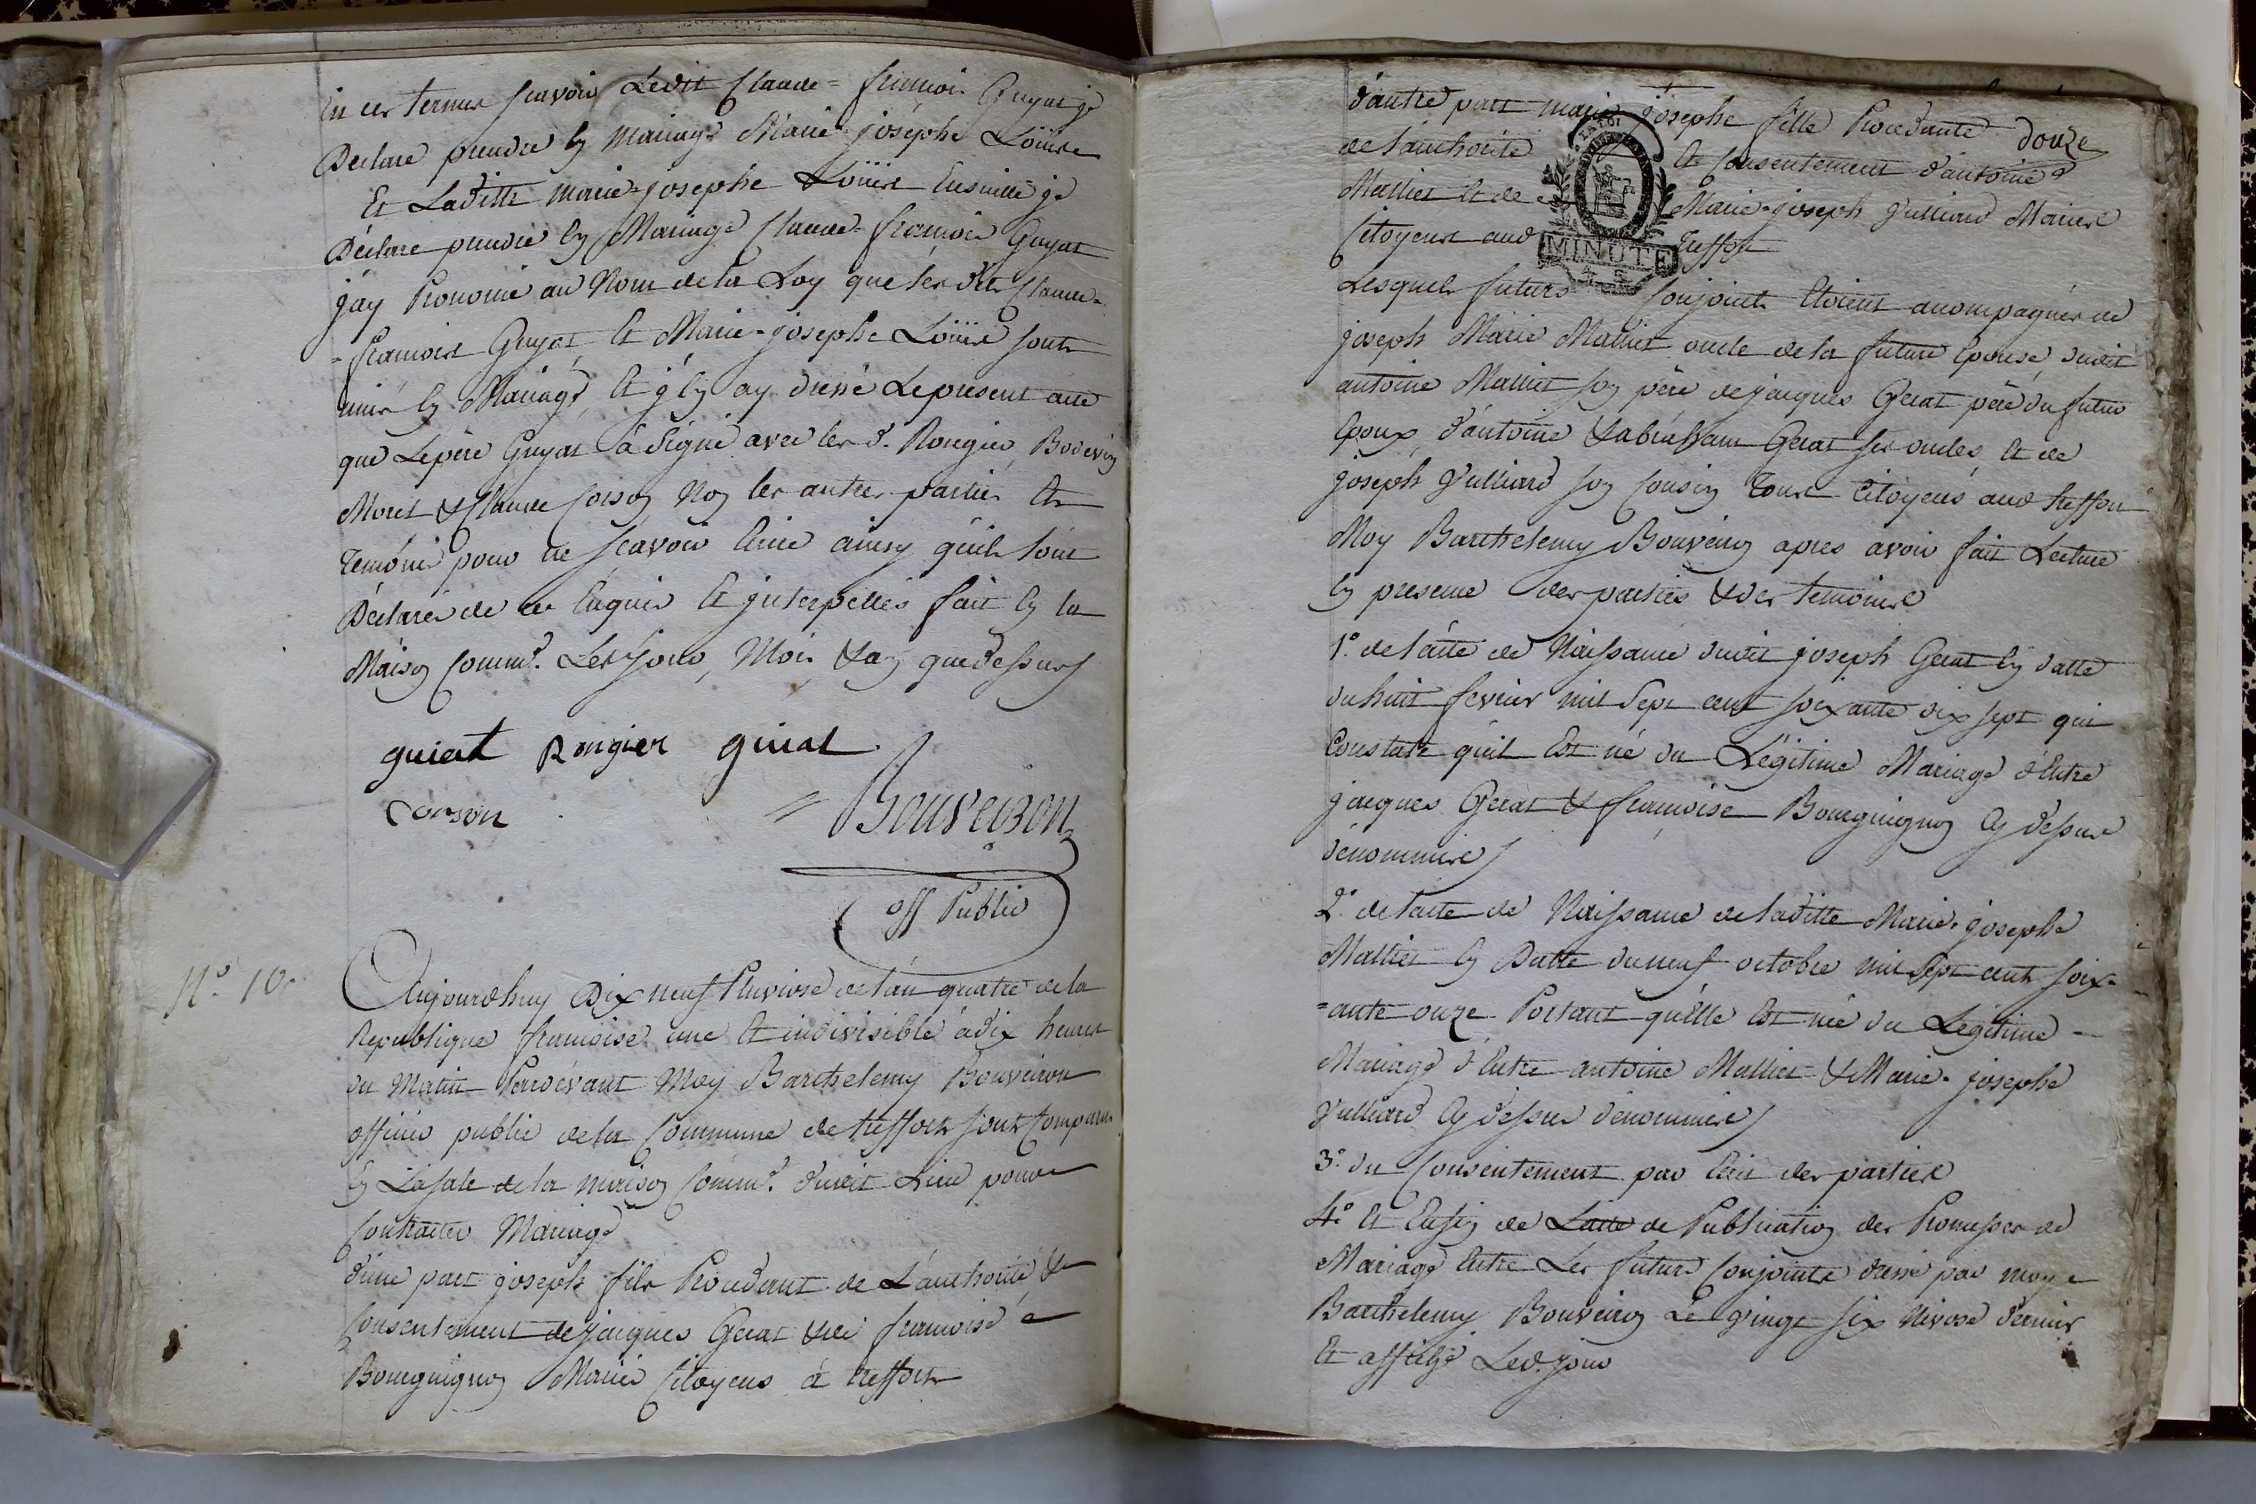 En ces termes scavoir Ledit Claude = francois Guyat je
Declare prendre en Mariage Marie-josephe Loüise
Et Laditte Marie-josephe Loüise Ensuitte je
Declare prendre en Mariage Claude-francois Guyat
jay Prononcé au Nom de la Loy que les dits Claude-
=francois Guyat Et Marie-josephe Loüise sont
unis en Mariage, Et j'en ay dressé Le present acte
que Le père Guyat a signé avec les d. Rongier Bodevin
Morel & Claude Corson Non les autres parties Et
temoins pour ne scavoir Ecrire ainsy qu'ils l'ont
Declarés de ce Enquis Et jnterpellés fait en la
Maison Comm.e Les jour, Mois & an que dessus
guiat Rongier guiat
Corson Bouveiron
off Public
N.o 10.
Aujourdhuy Dix neuf Pluviose de l'an quatre de la
Republique francoise une Et indivisible à dix heures
du Matin Pardevant Moy Barthelemy Bouveiron
officier public de la Commune de treffort sont Comparus
en La sale de la maison Comm.e dudit Lieu pour
Contracter Mariage
d'une part joseph fils Procedant de L'authorité &
Consentement de jacques Gerat & de francoise
Bourguignon Mariés Citoyens à treffort
douze
d'autre part marie josephe fille Procedante
de l'authorité Et Consentement d'antoine
Mallier Et de Marie-joseph Vulliard Mariés
Citoyens aud. Treffort
MINUTE
Lesquels futurs Conjoints Etoient accompagnés de
joseph Marie Mallier oncle de la future Epouse, dudit
antoine Mallier son père de jacques Gerat père du futur
Epoux, d'antoine & abraham Gerat ses oncles, Et de
joseph Vulliard son Cousin Tous Citoyens aud. treffort
Moy Barthelemy Bouveiron apres avoir fait Lecture
en presence des parties & des temoins
1.o de l'acte de Naissance dudit joseph Gerat en datte
du huit fevrier mil sept cent soixante dix sept qui
Constate qu'il Est né du Légitime Mariage d'Entre
jacques Gerat & francoise Bourguignon Cy dessus
dénommés
2.o de l'acte de Naissance de laditte Marie-josephe
Mallier en Datte du neuf octobre mil sept cent soix-
=ante onze Portant qu'elle Est née du Legitime
Mariage d'Entre antoine Mallier & Marie-josephe
Vulliard Cy dessus dénommés
3.o du Consentement par Ecrit des parties
4.o Et Enfin de L'acte de Publication des Promesses de
Mariage Entre Les futurs Conjoints dressé par moy
Barthelemy Bouveiron Le vingt six Nivose dernier
Et affiché Led. jour